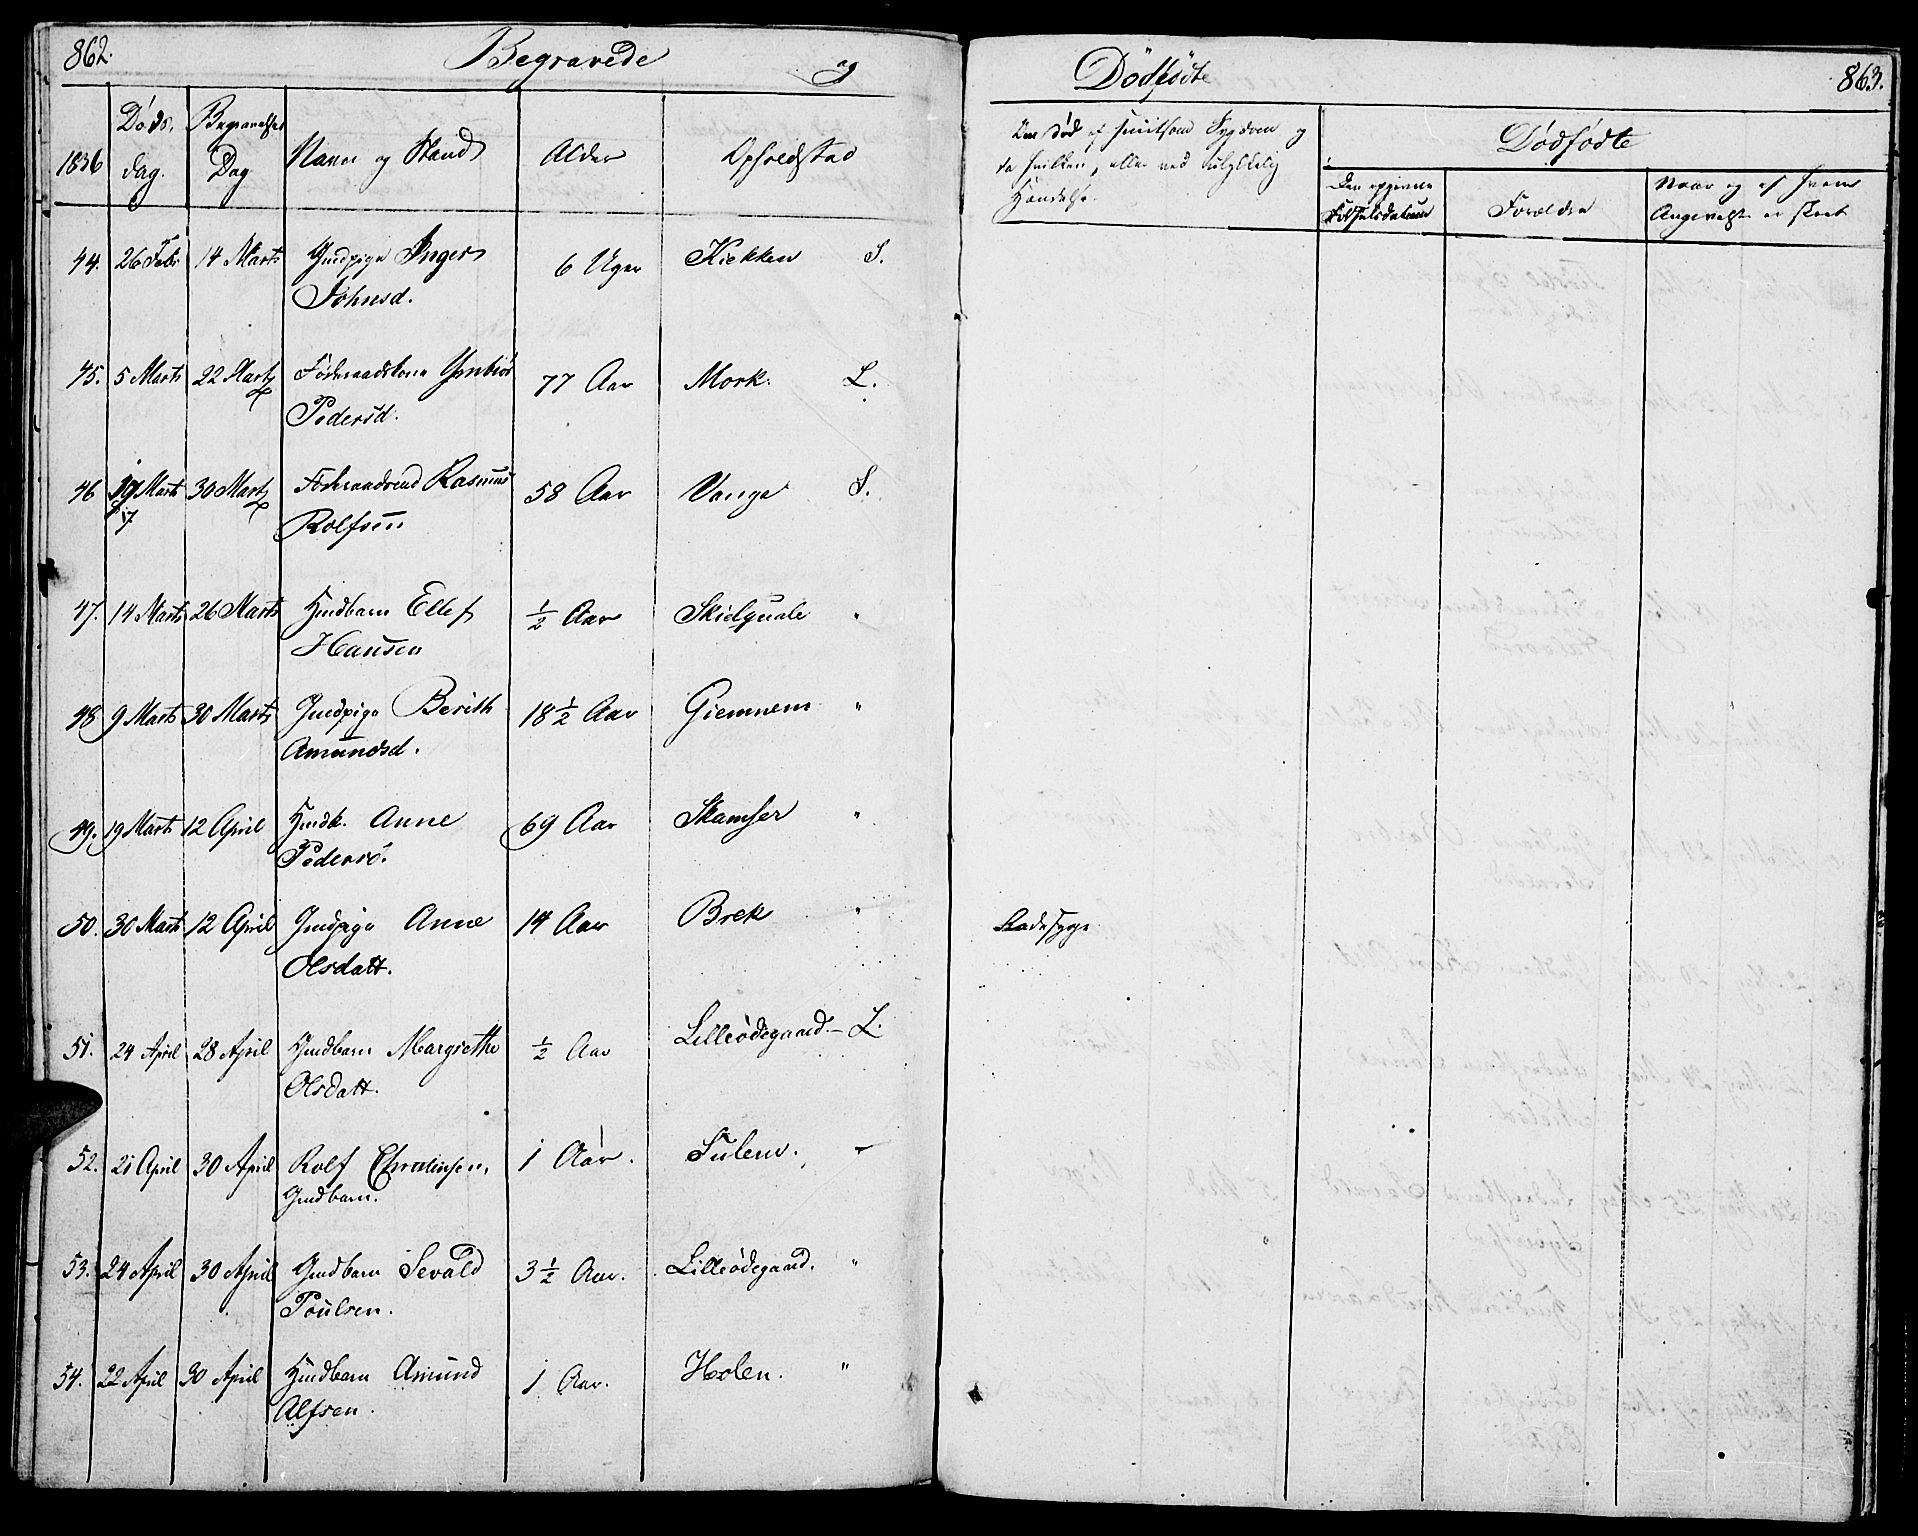 862.
Begravede og
1836
Døds,
dag.
Begravelses
Dag
Navn og Stand
Alder
Opholdsted
44. 26 Feb. 14 Marts Indpige Inger 6 Uger Kiekken S.
Johnsd.
45. 5 Marts 22 Marts Føderaadskone 77 Aar Mork. L.
Pedersd.
46 Marts 30 Marts Føderaadsmd Rasmus 58 Aar Vange S.
17
Rolfsen
47. 14 Marts 26 Marts Indbarn Ellef ½ Aar Skielquale "
Hansen
48 9 Marts 30 Marts Indpige Berith 18 ½ Aar Giemnem "
Amundsd.
49. 19 Marts 12 April Indk. Anne 69 Aar Skamser "
Pedersd.
50. 30 Marts 12 April Indpige Anne 14 Aar Brek "
Olsdatt.
51. 24 April 28 April Indbarn Margrethe ½ Aar Lilleödegaard. – L.
Olsdatt.
52. 21 April 30 April Rolf 1 Aar. Sulem. –
Indbarn.
53. 24 April 30 April Indbarn Sevald 3 ½ Aar. Lilleödegaard. "
Poulsen.
54. 22 April 30 April Indbarn Amund 1 Aar. Holen. "
Alfsen.
Dödfödte
863.
Om død af smitsom Sygdom og
da hvilken, eller ved ulykkelig
Hændelse.
Dødfødte
Den opgivne
Fødselsdatum
Forældre
Naar og af hvem
Angivelse er skeet
Radesyge